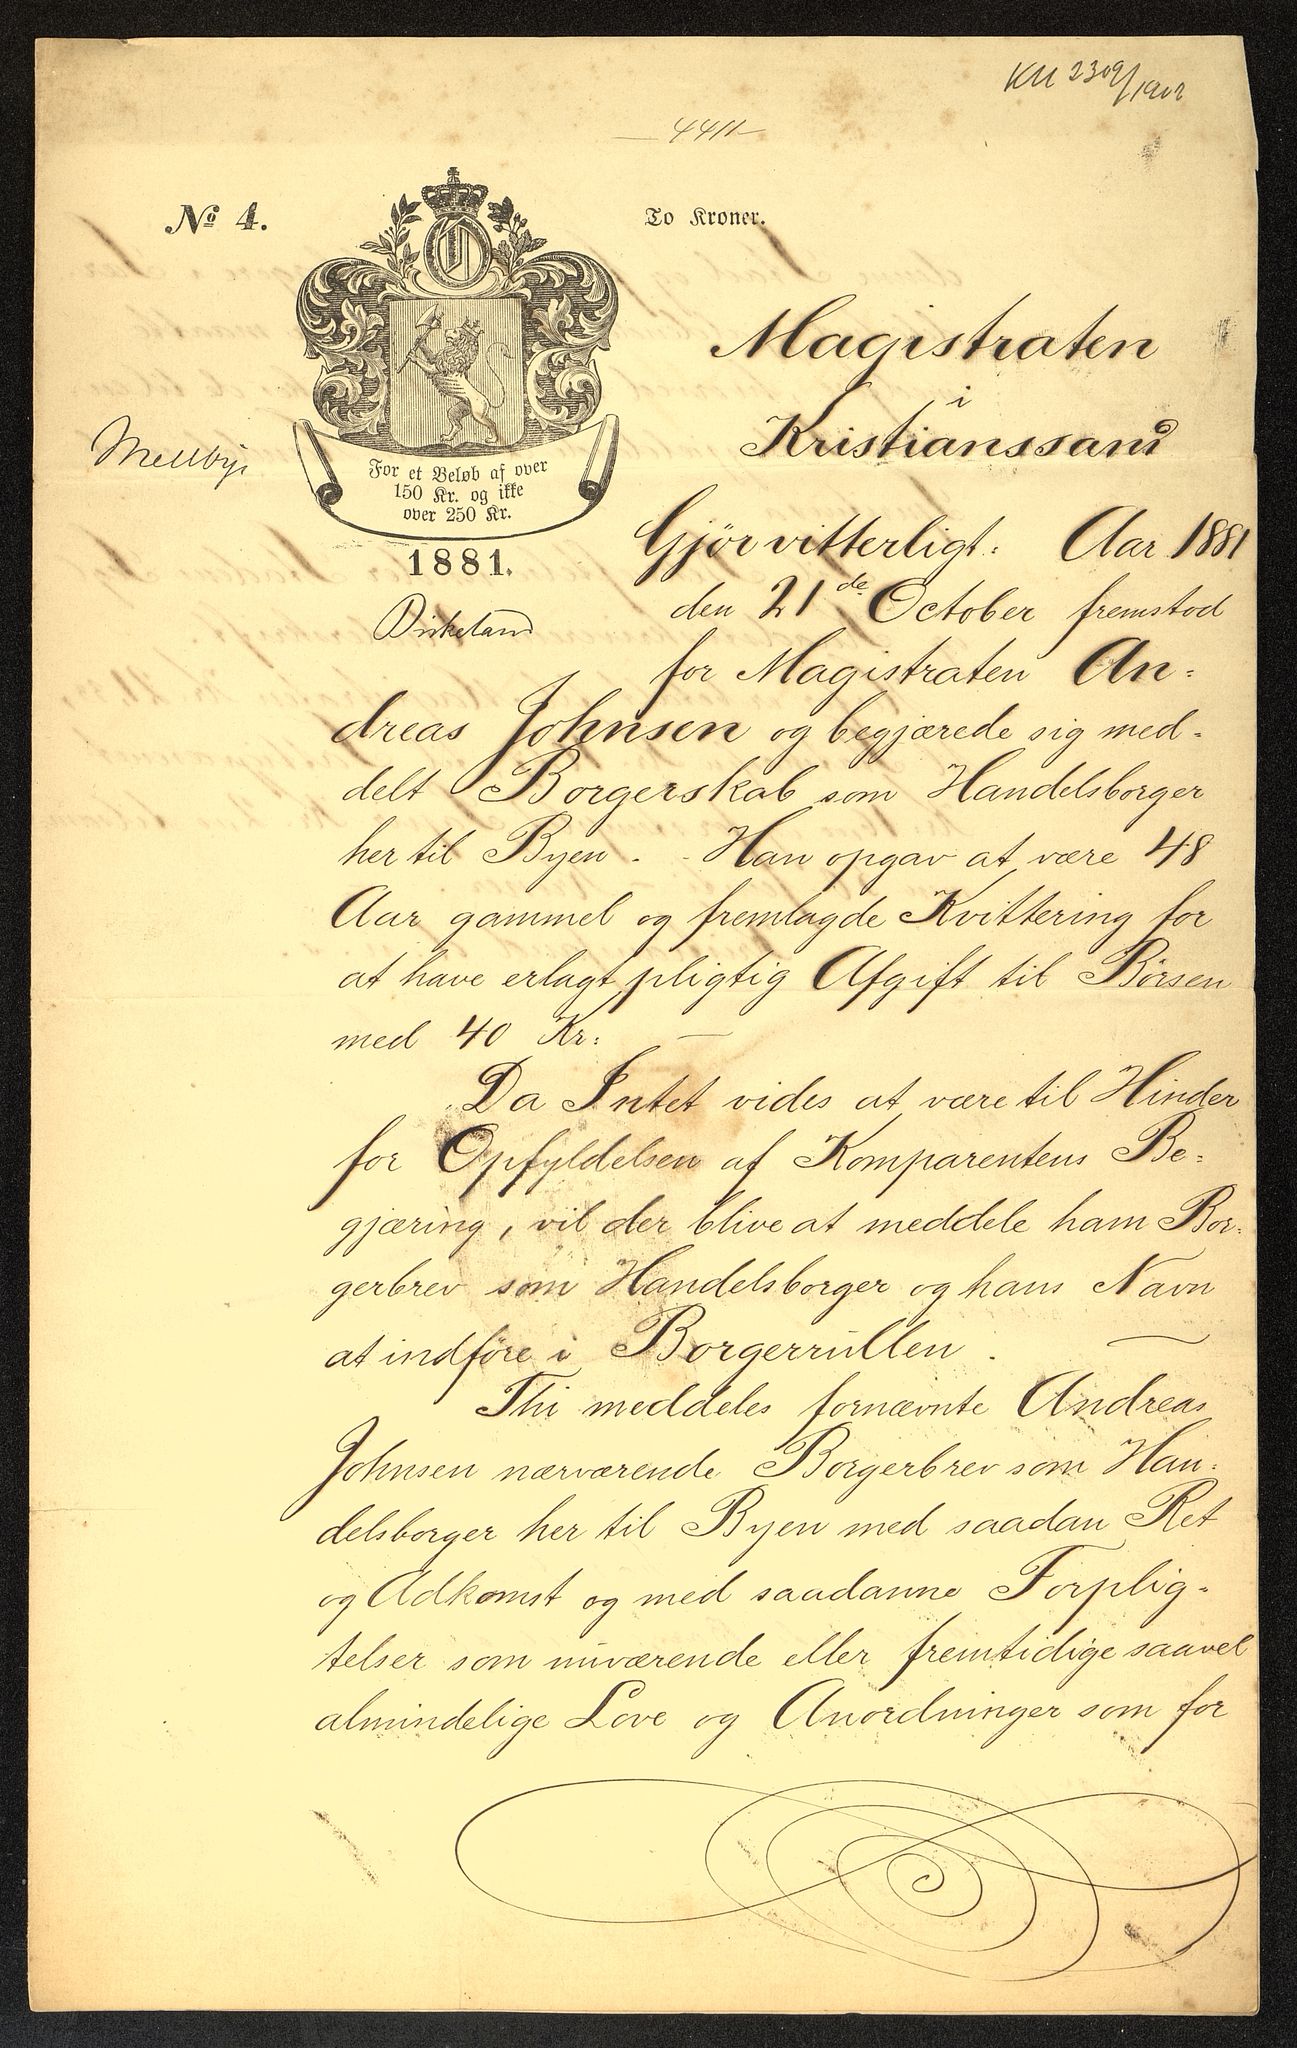 KM 2309/1902
4411
No 4.
To Kroner.
Magistraten
i
Kristianssand
Mellbye
For et Beløb af over
150 Kr. og ikke
over 250 Kr.
1881.
Birkeland
Gjør vitterligt: Aar 1881
den 21de October fremstod
for Magistraten An-
dreas Johnsen og begjærede sig med-
delt Borgerskab som Handelsborger
her til Byen. - Han opgav at være 48
Aar gammel og fremlagde Kvittering for
at have erlagt pligtig Afgift til Børsen
med 40 Kr: —
Da Intet vides at være til Hinder
for Opfyldelsen af Komparentens Be-
gjæring, vil der blive at meddele ham Bor-
gerbrev som Handelsborger og hans Navn
at indføre i Borgerrullen. —
Thi meddeles fornævnte Andreas
Johnsen nærværende Borgerbrev som Han-
delsborger her til Byen med saadan Ret
og Adkomst og med saadanne Forplig-
telser som nuværende eller fremtidige saavel
almindelige Love og Anordninger som for